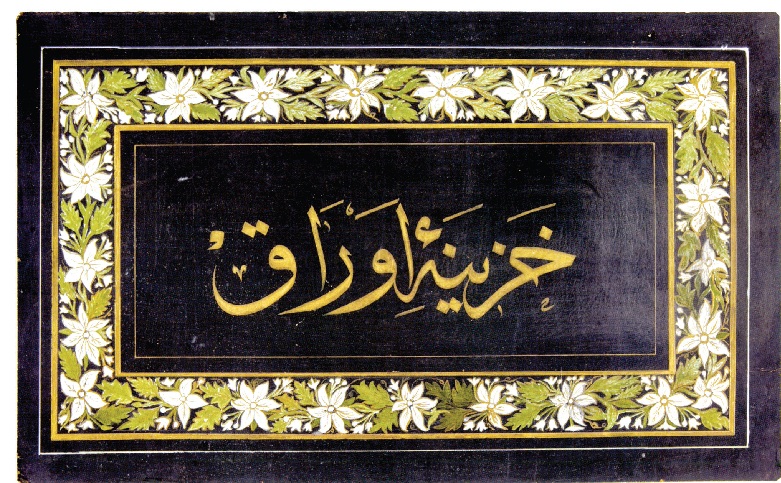 خزينهٔ اوراق